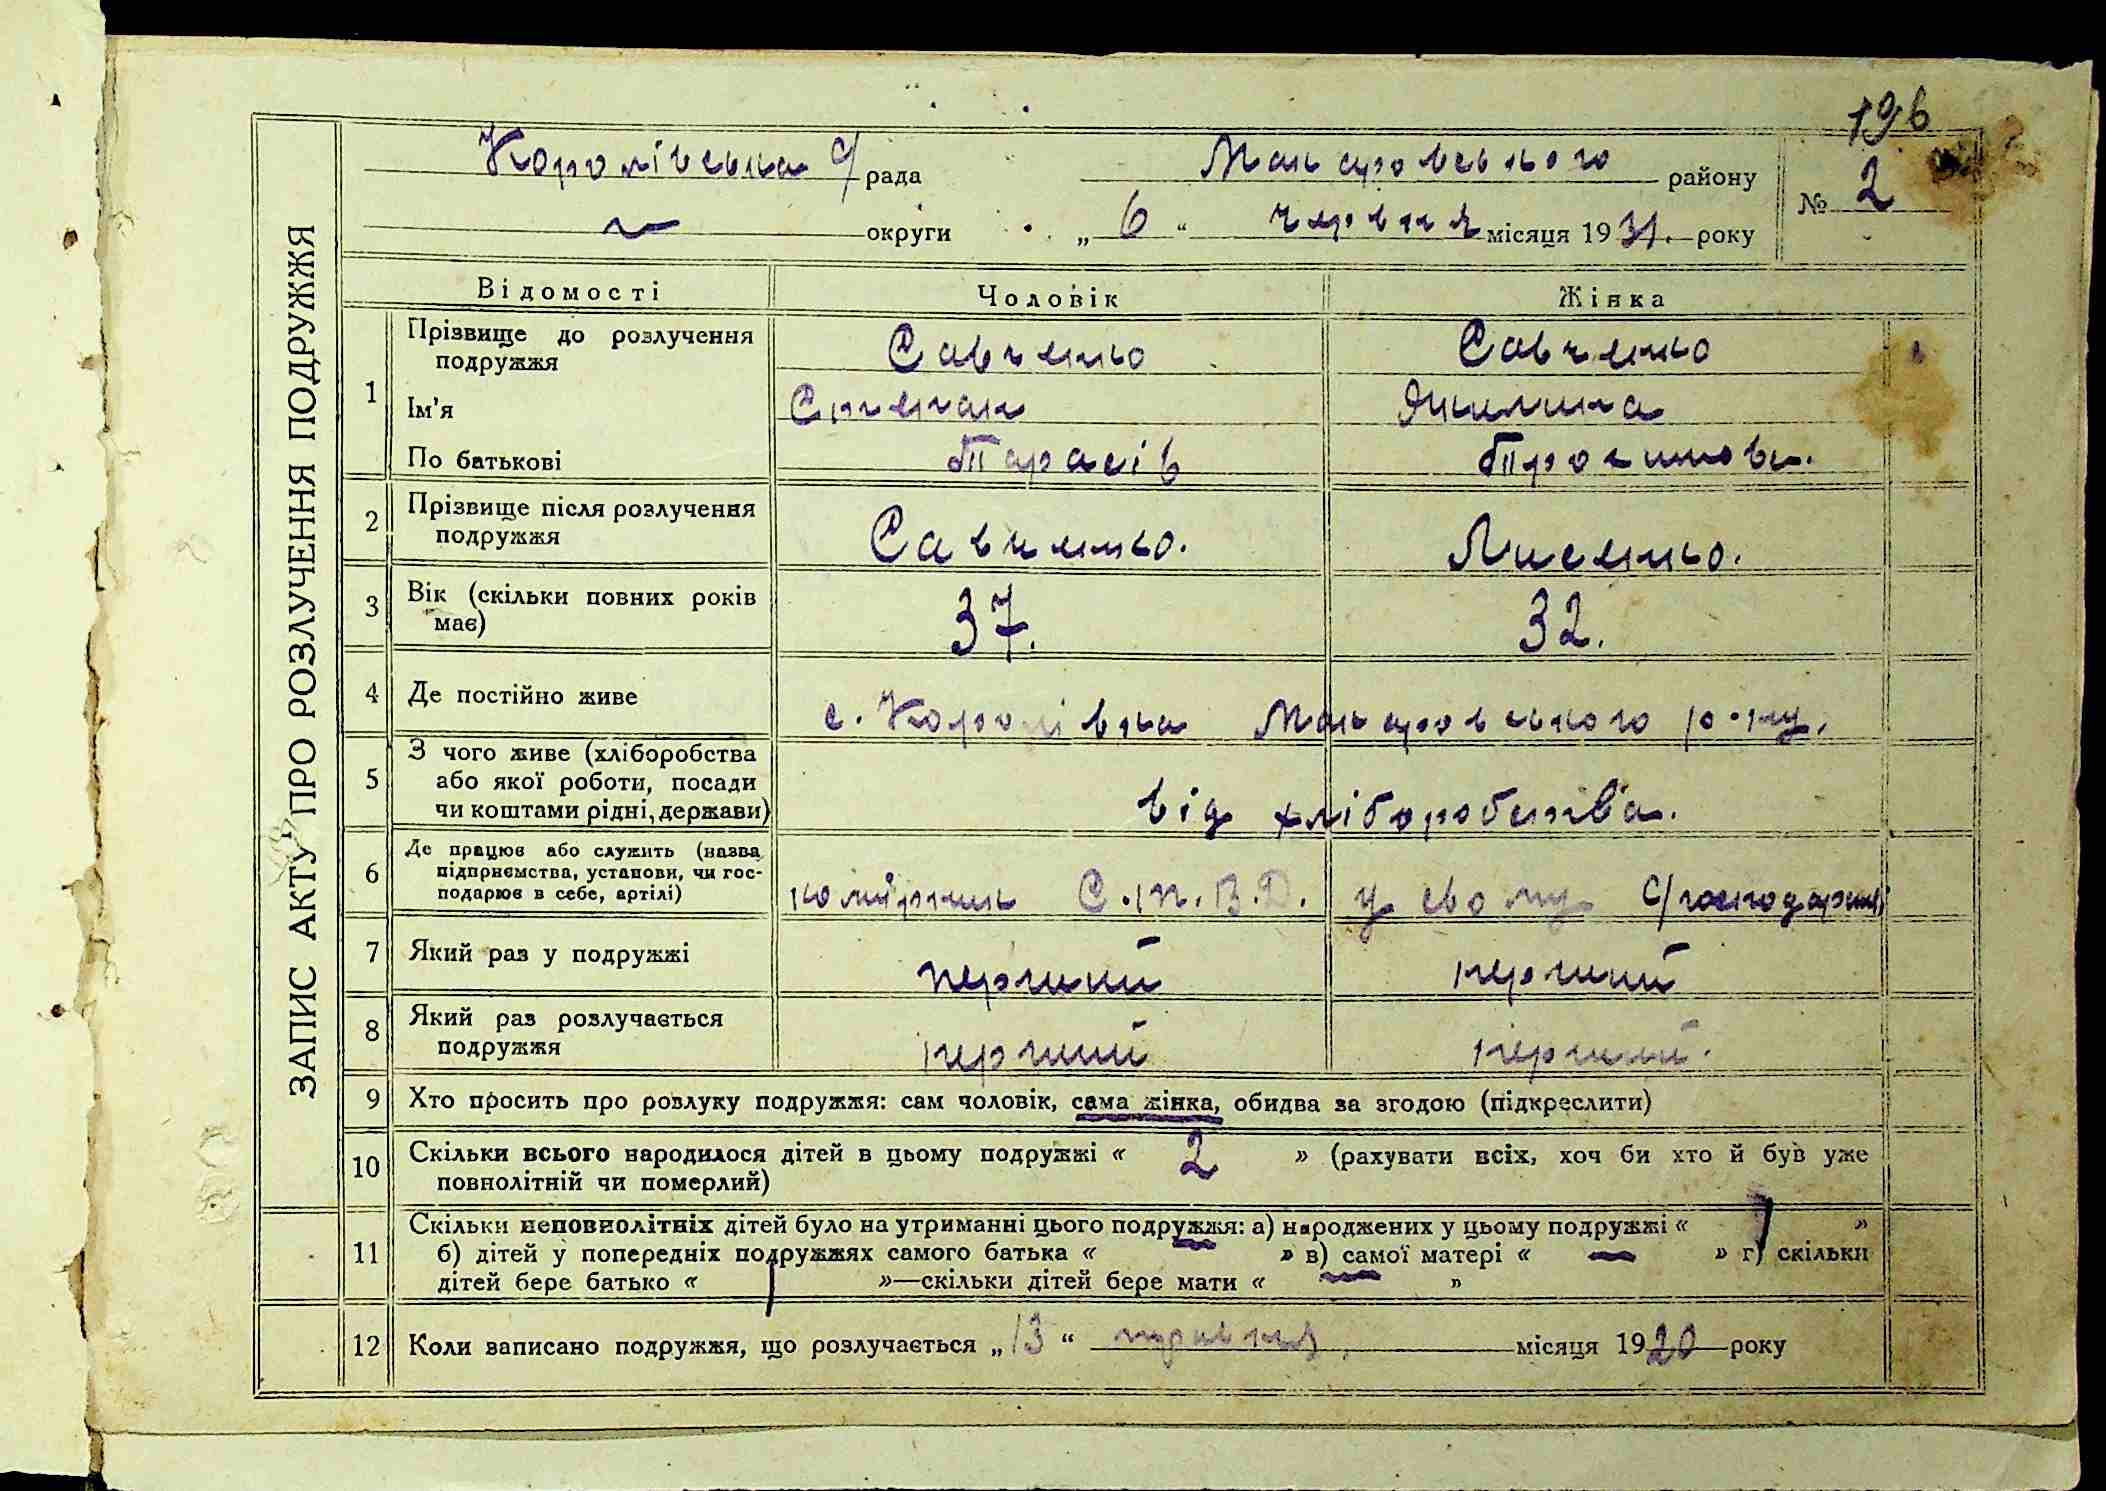 196
Королівська с/рада Макаровського району
№ 2
округи „ 6 “ червня місяця 1931. року
ЗАПИС АКТУ ПРО РОЗЛУЧЕННЯ ПОДРУЖЖЯ
Відомості Чоловік Жінка
1 Прізвище до розлучення подружжя Савченко Савченко
Ім'я Степан Якилина
По батькові Тарасів
2 Прізвище після розлучення подружжя Савченко. Лисенко.
3 Вік (скільки повних років має) 37. 32.
4 Де постійно живе с. Королівка Макаровського р-ну.
5 З чого живе (хліборобства або якої роботи, посади чи коштами рідні, держави) від хліборобства.
6 Де працює або служить (назва підприємства, установи, чи господарює в себе, артілі) комірник С.п.В.Д. у свому с/господарстві
7 Який раз у подружжі перший перший
8 Який раз розлучається подружжя перший перший.
9 Хто просить про розлуку подружжя: сам чоловік, сама жінка, обидва за згодою (підкреслити)
10 Скільки всього народилося дітей в цьому подружжі « 2 » (рахувати всіх, хоч би хто й був уже
повнолітній чи померлий)
11 Скільки неповнолітніх дітей було на утриманні цього подружжя: а) народжених у цьому подружжі « 1 »
б) дітей у попередніх подружжях самого батька « » в) самої матері « — » г) скільки
дітей бере батько « 1 »—скільки дітей бере мати « — »
12 Коли записано подружжя, що розлучається „ 13 “ травня, місяця 1920 року